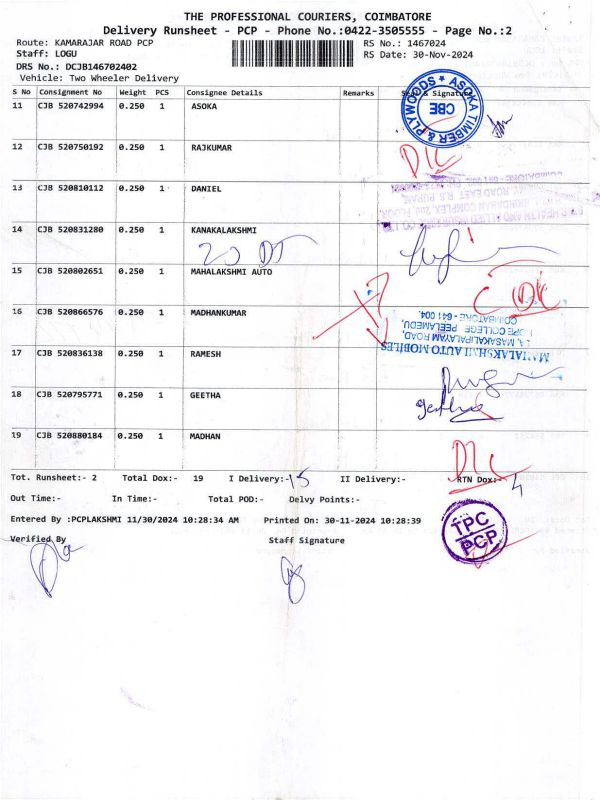 THE PROFESSIONAL COURIERS, COIMBATORE
Delivery Runsheet - PCP - Phone No.:0422-3505555 - Page No.:2
Route: KAMARAJAR ROAD PCP RS No.: 1467024
Staff: LOGU RS Date: 30-Nov-2024
DRS No.: DCJB146702402
Vehicle: Two Wheeler Delivery
S No Consignment No Weight PCS Consignee Details Remarks Seal & Signature
11 CJB 520742994 0.250 1 ASOKA
ASOKA TIMBER & PLYWOODS
CBE
12 CJB 520750192 0.250 1 RAJKUMAR
D/L
13 CJB 520810112 0.250 1 DANIEL
14 CJB 520831280 0.250 1 KANAKALAKSHMI
15 CJB 520802651 0.250 1 MAHALAKSHMI AUTO
16 CJB 520866576 0.250 1 MADHANKUMAR
MAHALAKSHMI AUTO MOBILES
MASAKALIPALAYAM ROAD,
HOPE COLLEGE PEELAMEDU,
COIMBATORE - 641 004.
17 CJB 520836138 0.250 1 RAMESH
18 CJB 520795771 0.250 1 GEETHA
geetha
19 CJB 520880184 0.250 1 MADHAN
D/L
Tot. Runsheet:- 2 Total Dox:- 19 I Delivery:- 15 II Delivery:- RTN Dox:- 4
Out Time:- In Time:- Total POD:- Delvy Points:-
Entered By :PCPLAKSHMI 11/30/2024 10:28:34 AM Printed On: 30-11-2024 10:28:39
TPC
PCP
Verified By Staff Signature